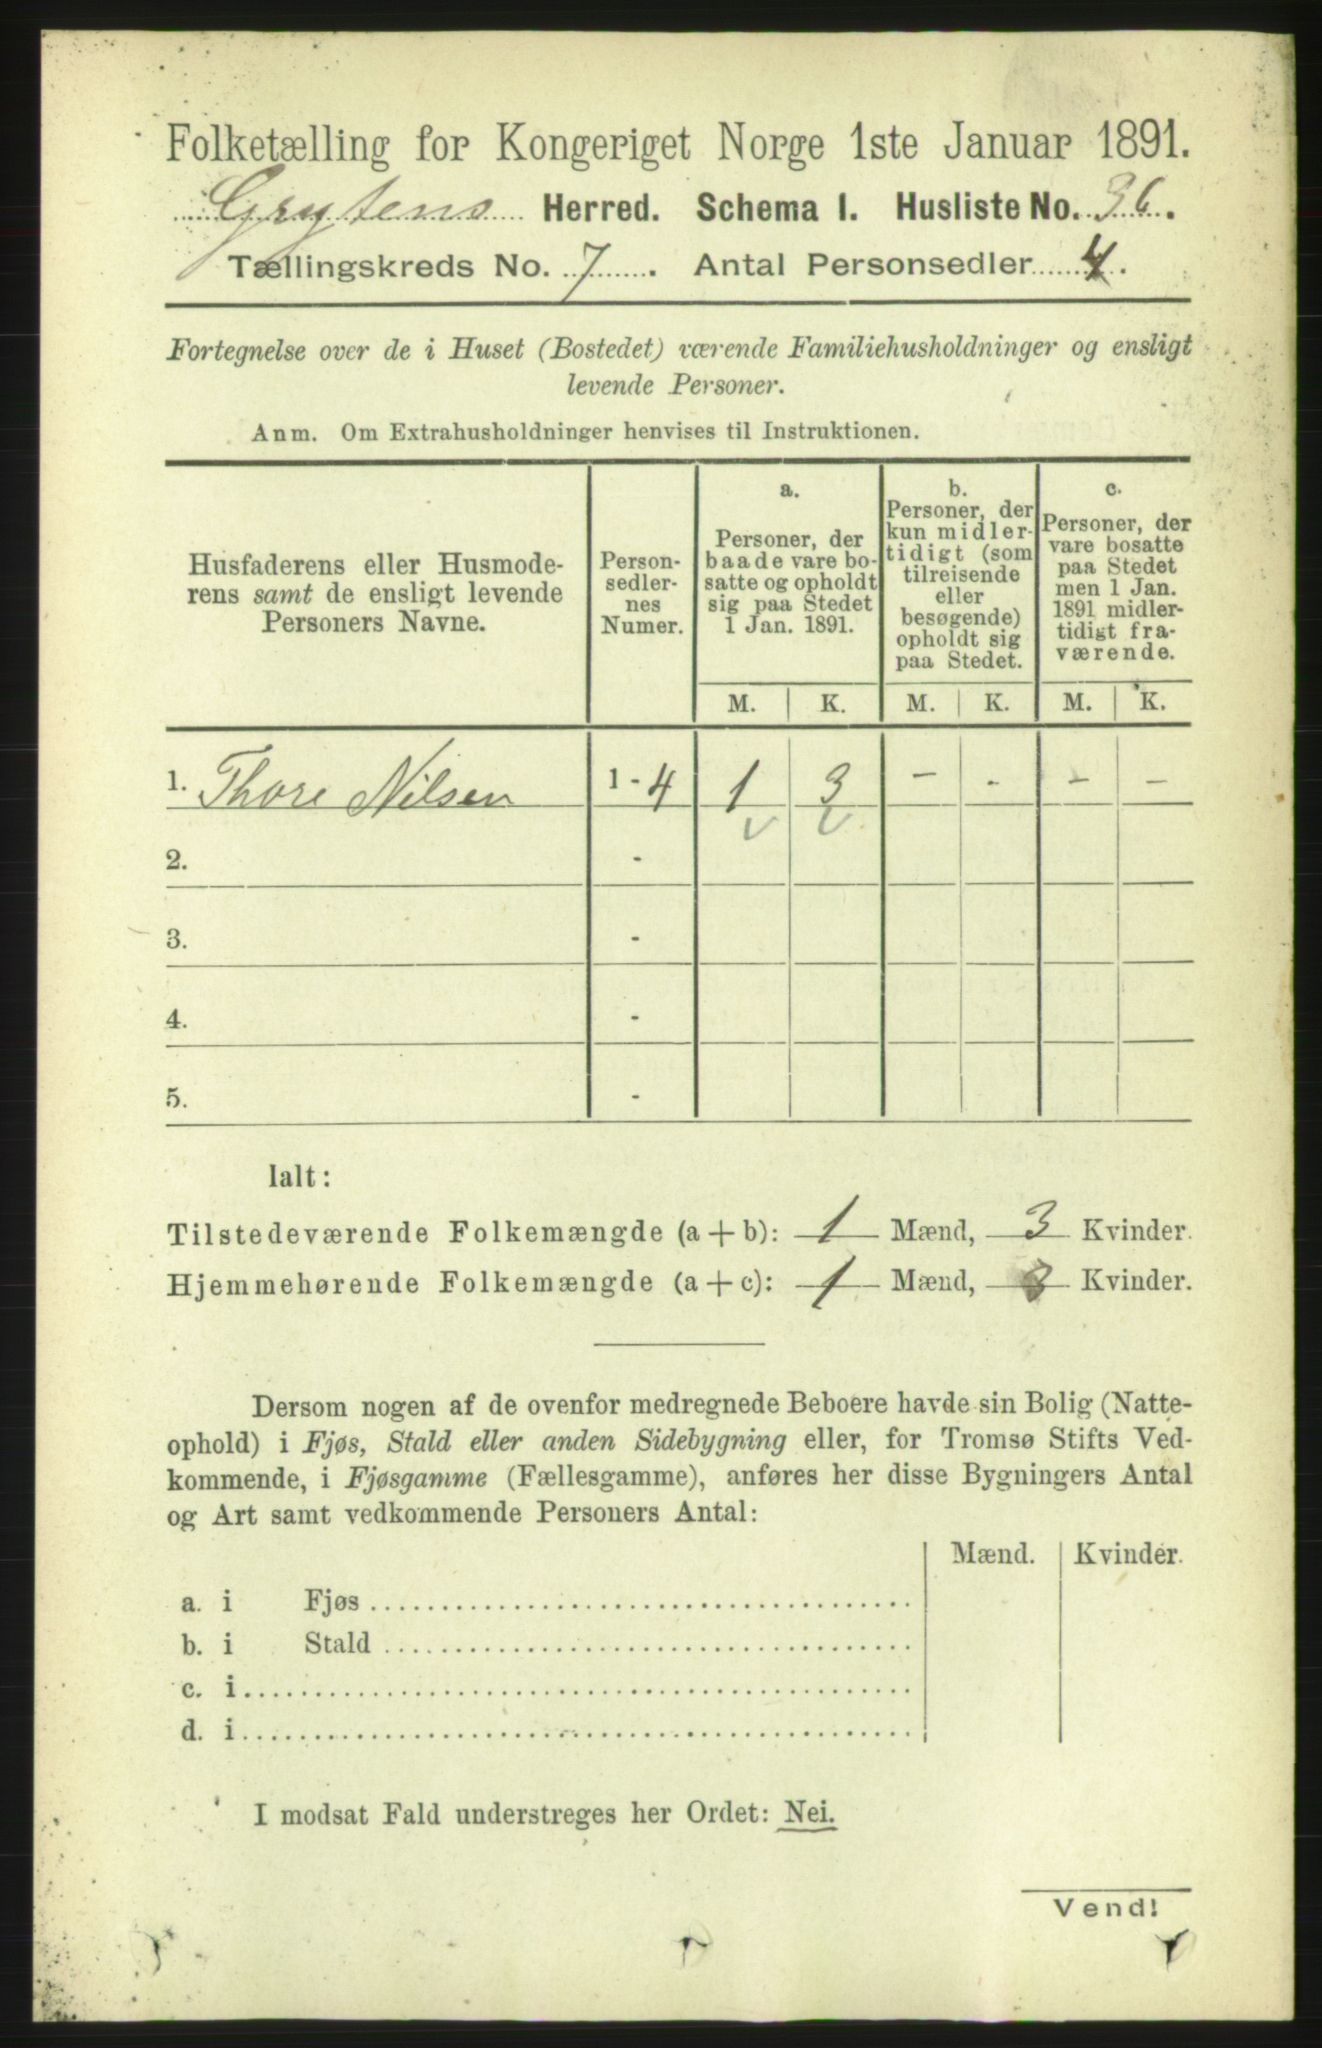 Folketælling for Kongeriget Norge 1ste Januar 1891.
Grytens Herred. Schema I. Husliste No. 36.
Tællingskreds No. 7. Antal Personsedler 4.
Fortegnelse over de i Huset (Bostedet) værende Familiehusholdninger og ensligt
levende Personer.
Anm. Om Extrahusholdninger henvises til Instruktionen.
Husfaderens eller Husmode-
rens samt de ensligt levende
Personers Navne.
Person-
sedler-
nes
Numer.
a.
Personer, der
baade vare bo-
satte og opholdt
sig paa Stedet
1 Jan. 1891.
b.
Personer, der
kun midler-
tidigt (som
tilreisende
eller
besøgende)
opholdt sig
paa Stedet.
c.
Personer, der
vare bosatte
paa Stedet
men 1 Jan.
1891 midler-
tidigt fra-
værende.
M. K. M. K. M. K.
1. Thore Nilsen 1 - 4 1 3 - - - -
2. -
3. -
4. -
5. -
Ialt:
Tilstedeværende Folkemængde (a + b): 1 Mænd, 3 Kvinder.
Hjemmehørende Folkemængde (a + c): 1 Mænd, 3 Kvinder.
Dersom nogen af de ovenfor medregnede Beboere havde sin Bolig (Natte-
ophold) i Fjøs, Stald eller anden Sidebygning eller, for Tromsø Stifts Ved-
kommende, i Fjøsgamme (Fællesgamme), anføres her disse Bygningers Antal
og Art samt vedkommende Personers Antal:
Mænd. Kvinder.
a. i Fjøs
b. i Stald
c. i
d. i
I modsat Fald understreges her Ordet: Nei.
Vend!